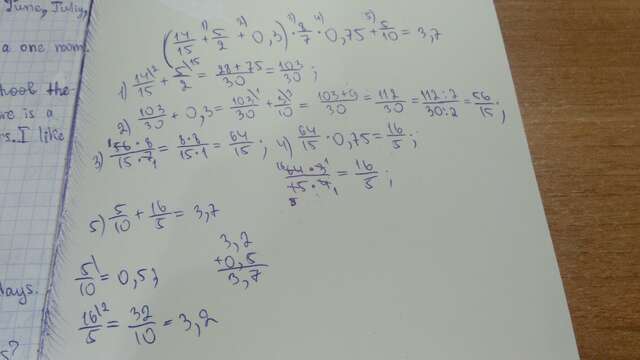 June, July,
a one
hoob the
re is a
rs. I like
days.
s?
1) 2) 3) 4) 5)
(14/15 + 5/2 + 0,3) · 8/7 · 0,75 + 5/10 = 3,7
1) 14\2/15 + 5\15/2 = (28+75)/30 = 103/30;
2) 103/30 + 0,3 = 103\1/30 + 3\3/10 = (103+9)/30 = 112/30 = (112:2)/(30:2) = 56/15;
3) (56·8)/(15·7) = (8·8)/(15·1) = 64/15; 4) 64/15 · 0,75 = 16/5;
(64·3)/(15·4) = 16/5;
5) 5/10 + 16/5 = 3,7
5\1/10 = 0,5;
3,2
+0,5
3,7
16\2/5 = 32/10 = 3,2